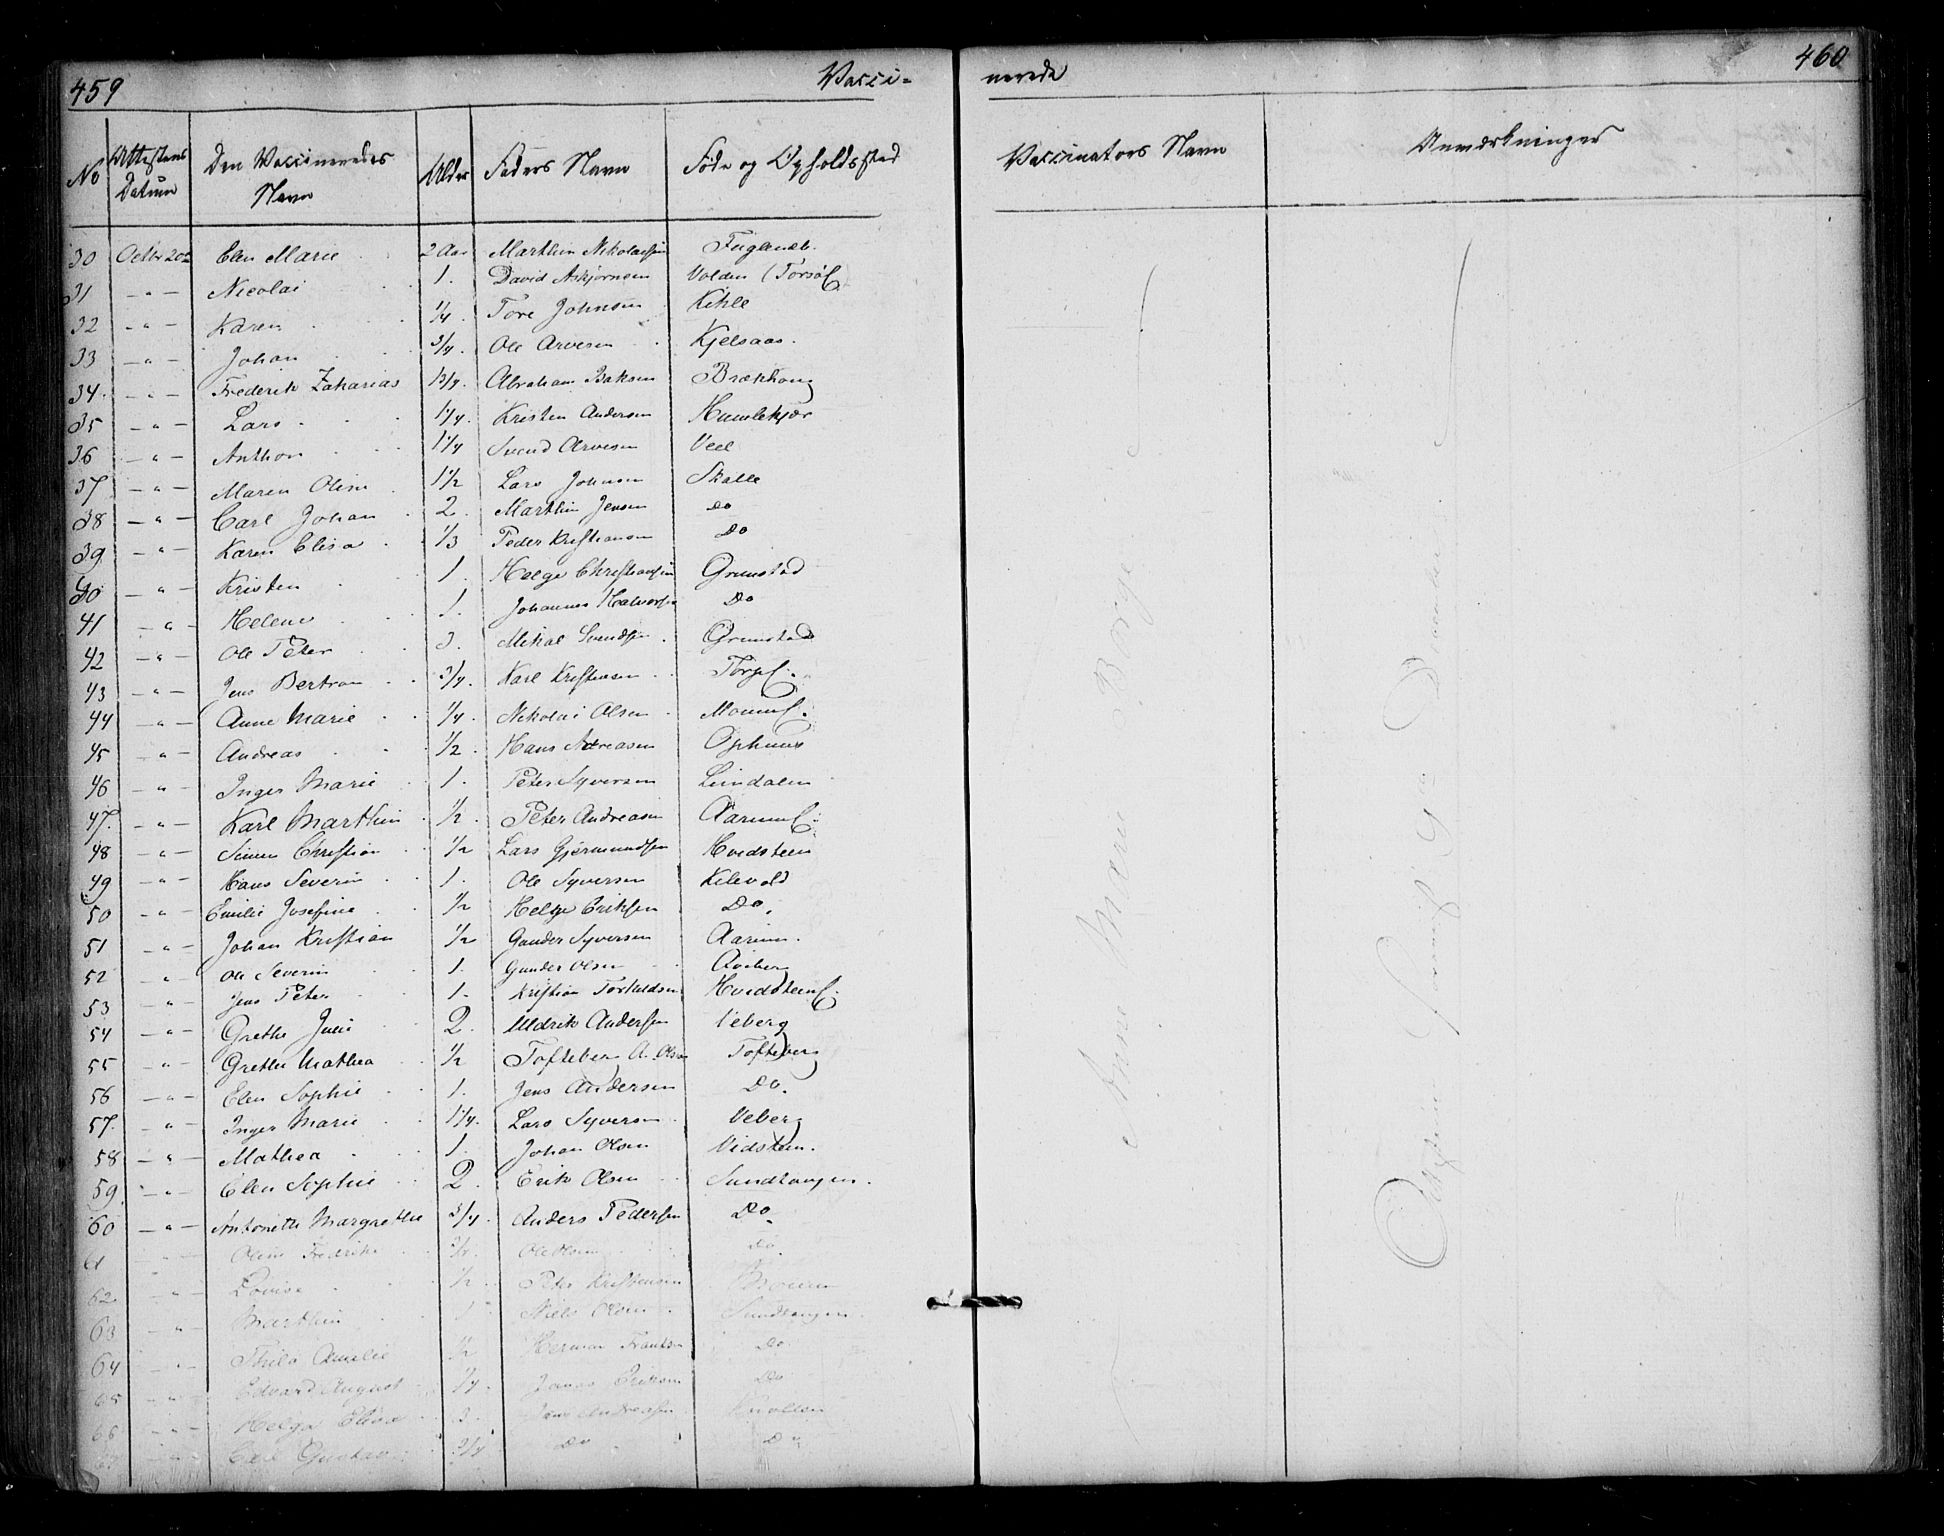 459 Vacci- nerede 460
No Attestens Datum Den Vaccineredes Navn Alder Faders Navn Føde og Opholdssted Vaccinators Navn Anmærkninger
30 Octbr 20de Elen Marie 2 Aar Marthin Nikolaisen Fuglensb.
31 - " - Nicolai 1. David Asbjørnsen Volden
32 - " - Karen 1/4 Tore Johnsen Kihle
33 - " - Johan 3/4. Ole Arvesen Kjelsaas.
34. - " - Frederik Zakarias 1 3/4. Abraham Baksen Brækhong
35 - " - Lars 1 1/4. Kristen Andersen Humlekjær
36 - " - Anthon 1 1/4 Svend Arvesen Veel
37. - " - Maren Oline 1 1/2 Lars Johnsen Skalle
38 - " - Carl Johan 2. Marthin Jensen do
39 - " - Karen Elisa 1/3 Peder Kristiansen Do
40 - " - Kristen 1. Helge Christiansen Grimstad
41 - " - Helene 1. Johannes Halvorsen Do
42 - " - Ole Peter 3. Mikal Svendsen Grimstad
43 - " - Jens Bertran 3/4. Karl Kristensen
44 - " - Anne Marie 1/4. Nikolai Olsen
45 - " - Andreas 1/2. Hans Adreasen Ophuus
46 - " - Inger Marie 1. Peter Syversen Lindalen
47. - " - Karl Marthin 1/2. Peter Andreasen
48 - " - Simen Christian 1/2 Lars Gjermundsen Hvidsteen
49 - " - Hans Severin 1. Ole Syversen Kilevold
50 - " - Emilie Josefine 1/2 Helge Eriksen Do.
51 - " - Johan Kristian 1/2 Gunder Syversen Aarum.
52 - " - Ole Severin 1. Gunder Olsen
53 - " - Jens Peter 1. Kristian Torkildsen
54 - " - Grethe Julie 2. Uldrik Andersen Veberg
55 - " - Grethe Mathea 1/2 Tofteberg A. Olsen Tofteberg
56 - " - Elen Sophie 1. Jens Andersen Do.
57. - " - Inger Marie 1 1/4. Lars Syversen Veberg
58 - " - Mathea 1. Johan Olsen Vidsteen.
59. - " - Elen Sophie 2. Erik Olsen Sundtangen.
60 - " - Antonette Margrethe 3/4. Anders Pedersen Do.
61 - " - Oline Fredrike Ole Olsen Do
62. - " - Lovise 1/2 Peter Kristensen
63 - " - Marthin 1 Niels Olsen Sundtangen.
64 - " - Thilo Amalie 1/2 Herman Frantsen Do
65 - " - Edvard August 1/4. Jonas Eriksen Do
66 - " - Helga Elisa 3. Jens Andreasen Knollen
67 - " - Carl Gustav 3/4 Do Do
Anne Marie Borge